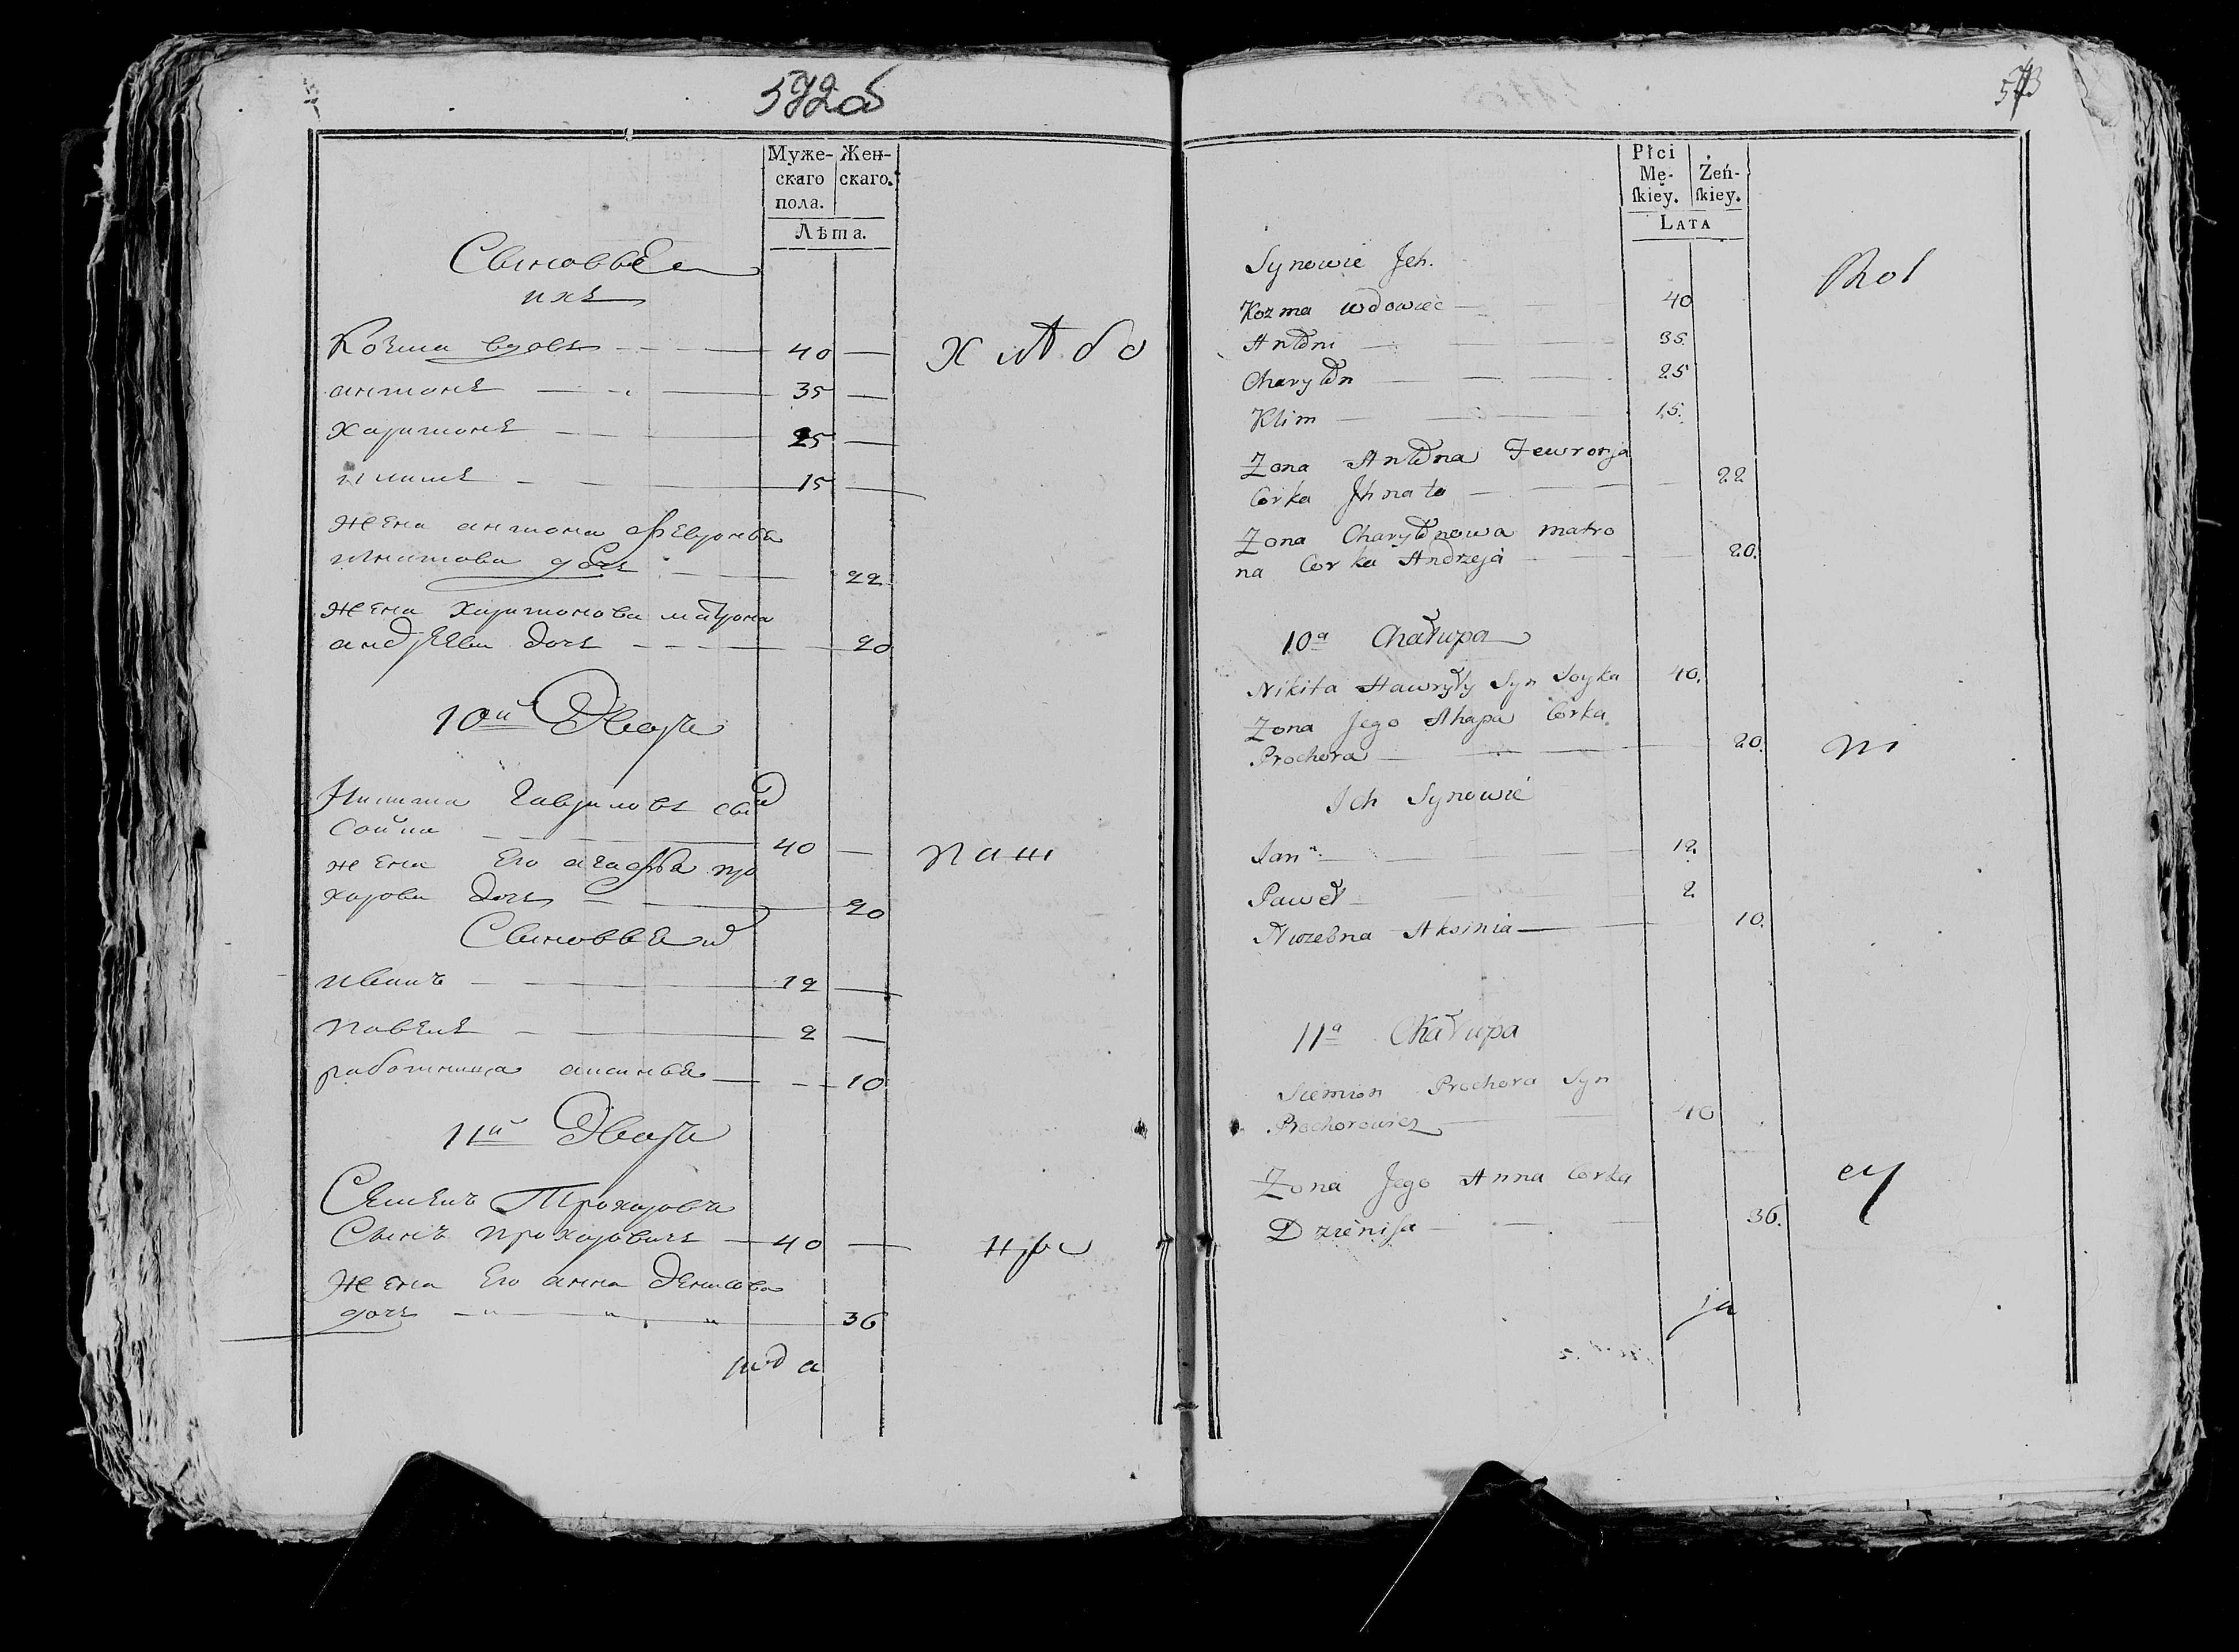 572об
Муже-
скаго
пола.
Жен-
скаго.
Лѣта.
Сыновье
ихъ
Козма вдовъ 40
антонъ 35
Харитонъ 25
Климъ 15
жена антона Февронья
Игнатова дочь 22
жена Харитонова матрона
андреева дочь 20
хлѣбо
10й Дворъ
Никита гавриловъ сынъ
Сойка 40
жена Его агафья про
хорова дочь 20
Сыновья
иванъ 12
павелъ 2
работница аксинья 10
паш
11й Дворъ
Семенъ Прохоровъ
Сынъ прохоровичь 40
жена Его анна денисова
дочь 36
цы
573
Płci
Mę-
ſkiey.
Żeń-
ſkiey.
LATA
Synowie Jch.
Kozma wdowiec 40
Antoni 35.
Charyton 25
Klim 15.
Zona Antona Fewronja
Corka Jhnata 22
Zona Charytonowa Matro
na Corka Andrzeja 20.
Rol
10a Chałupa
Nikita Hawryły Syn Soyka 40.
Zona Jego Ahapa Corka
Prochora 20.
Ich Synowie
Jan 12
Paweł 2
Słuzebna Aksinia 10.
ni
11a Chałupa
Siemion Prochora Syn
Prochorowicz 40
Zona Jego Anna Corka
Dzienisa 36.
cy